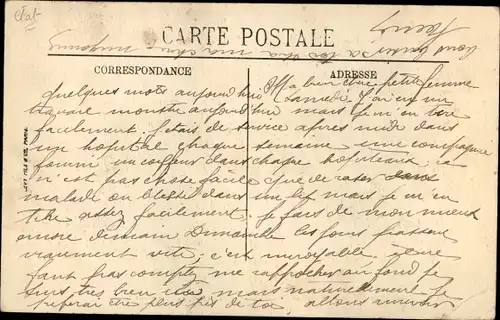 État
CARTE POSTALE
CORRESPONDANCE
ADRESSE
Ma bien chère petite femme
Quelques mots aujourd'hui Samedi J'ai eu un
travail monstre aujourd'hui mais je m'en tire
facilement. J'étais de service après midi dans
un hopital chaque semaine une compagnie
fourni un coiffeur dans chaque hopitaux, ça
n'est pas chose facile que de raser dans
malade ou blessé dans un lit mais je m'en
tire assez facilement. je fais de mon mieux
encore demain Dimanche les jours passent
vraiment vite; c'est incroyable, je ne
faut pas compter me rapprocher au fond je
suis très bien ici mais naturellement je
préferai être plus près de toi, allons
LEVY FILS & CIE, PARIS